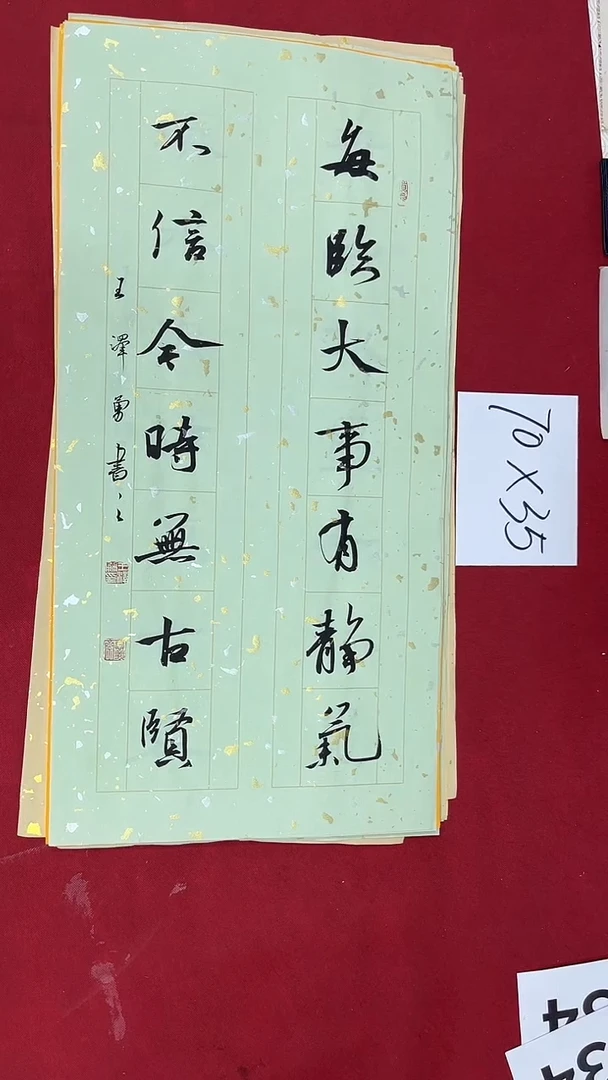 每臨大事有静氣
不信今時無古賢
王澤勇書之
70×35
34
34